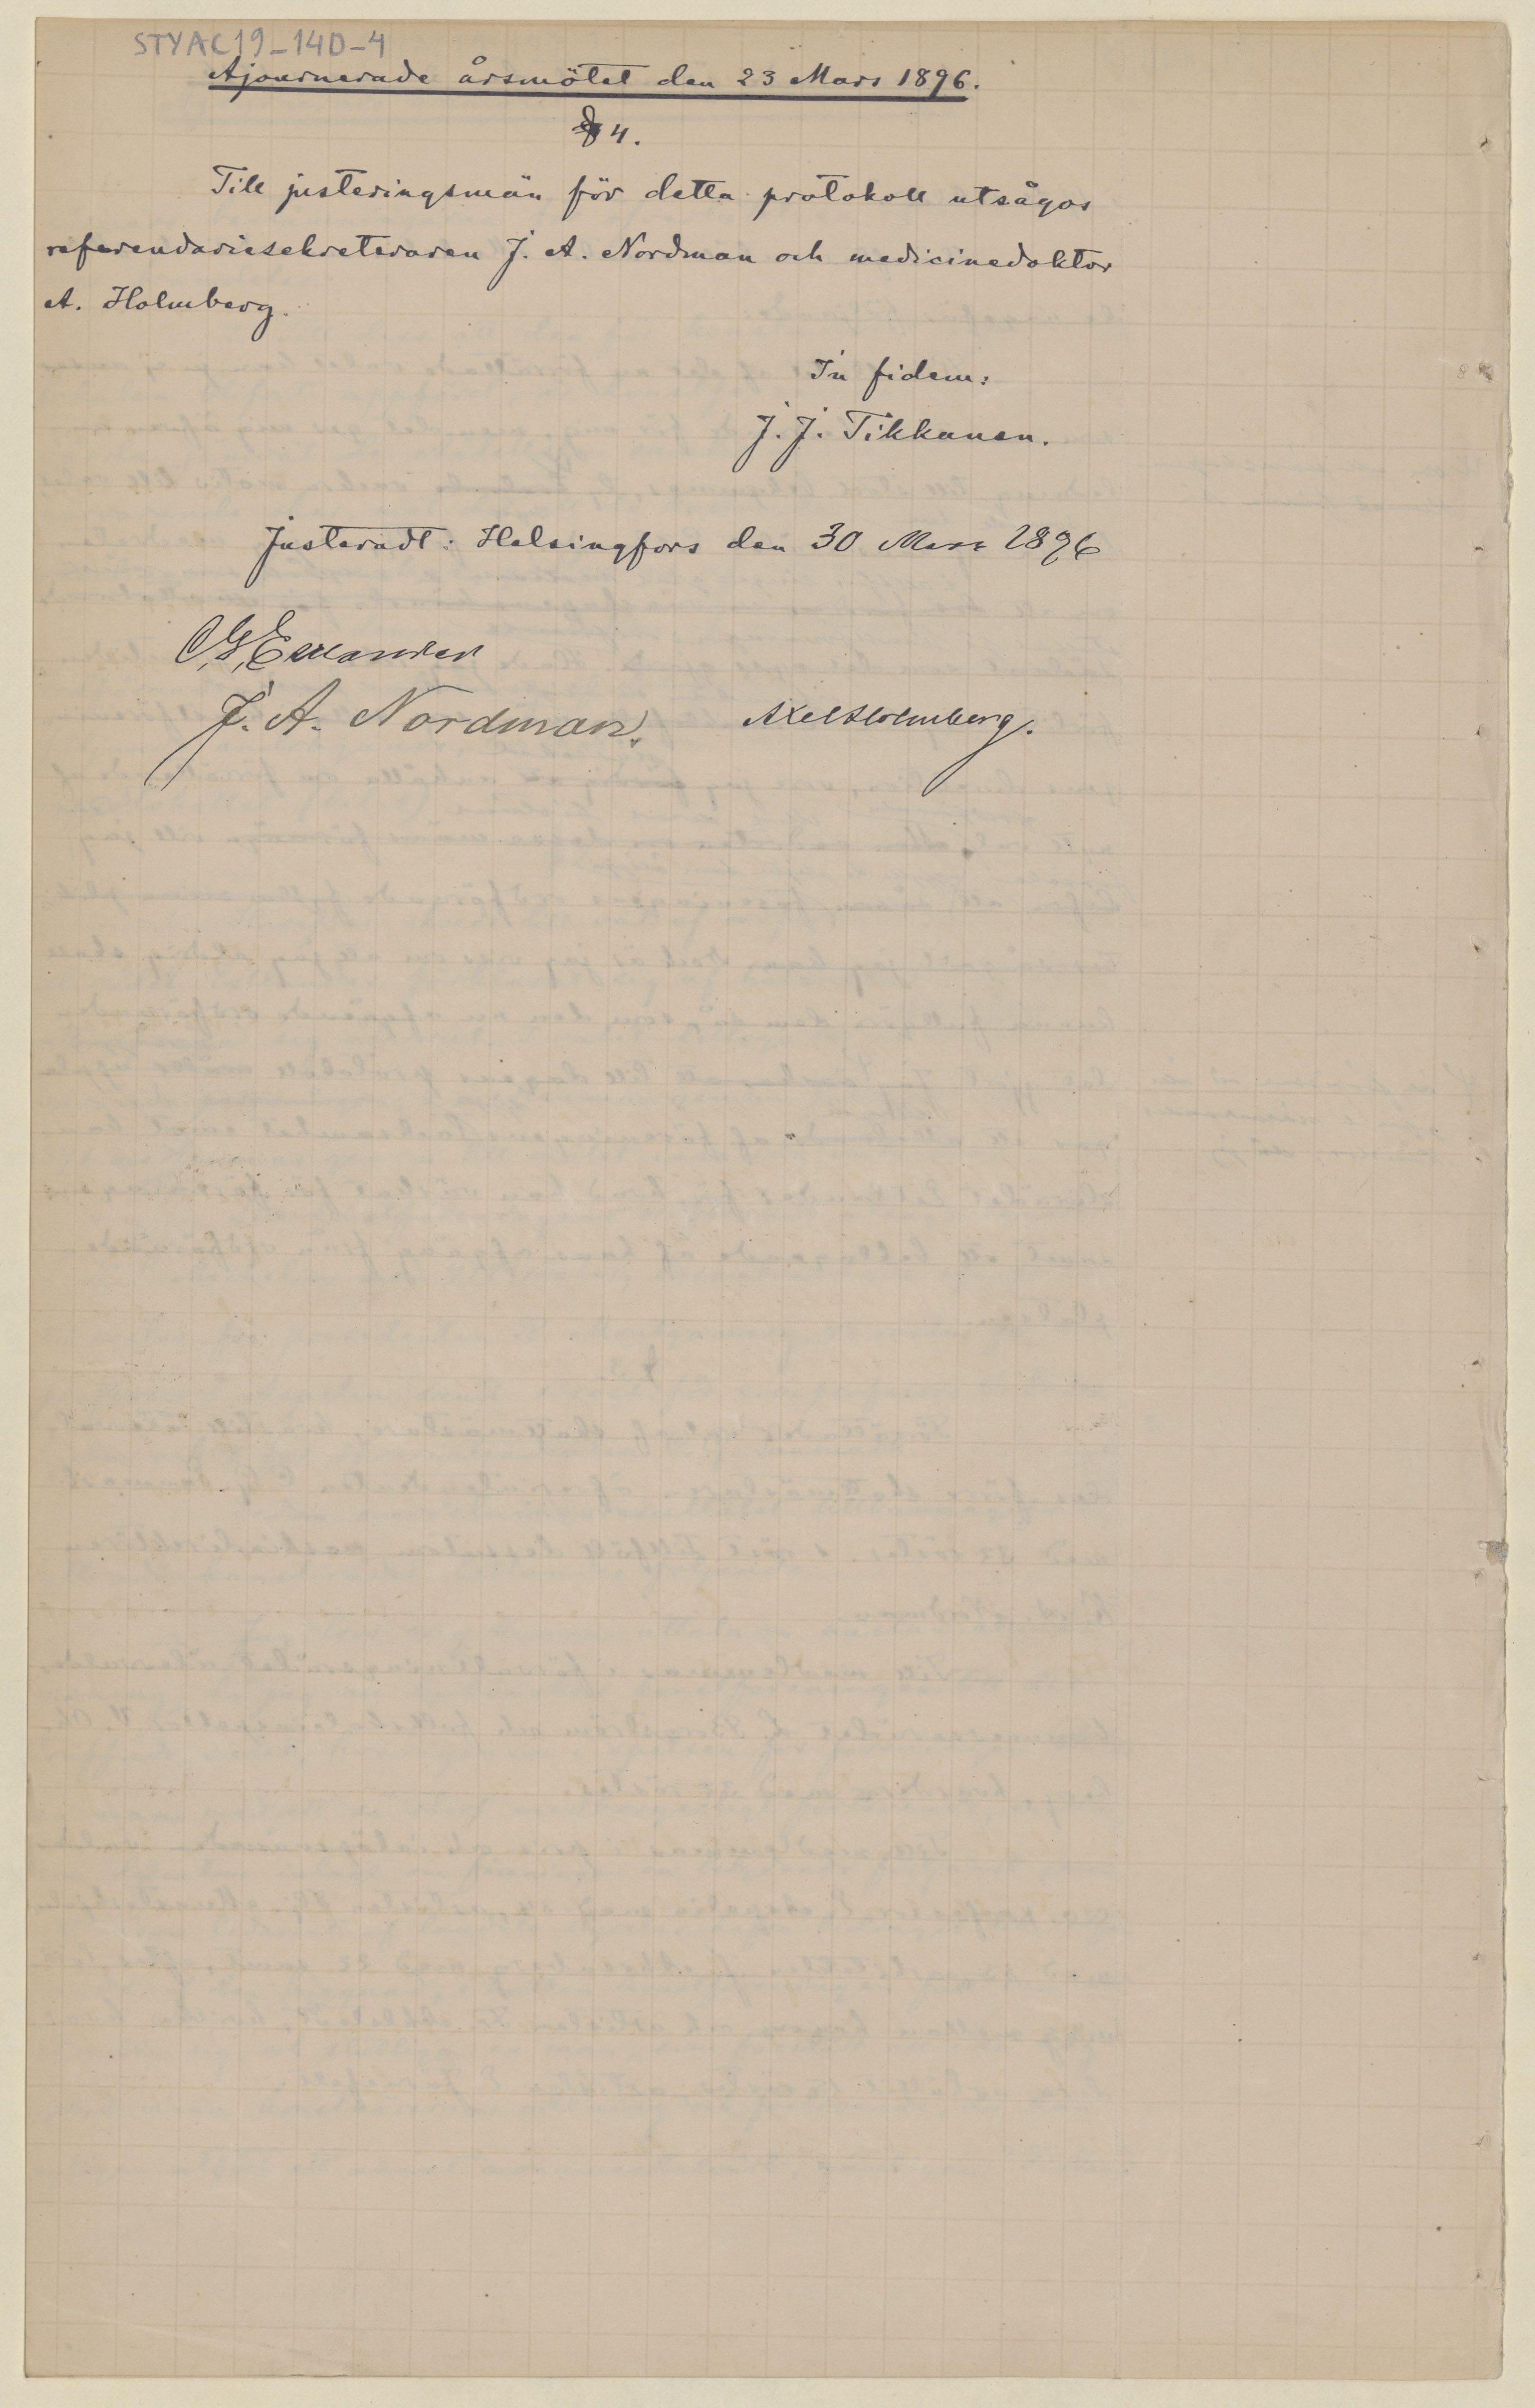 STYAC19_14D-4
Ajournerade årsmötet den 23 Mars 1896.
§ 4.
Till justeringsmän för detta protokoll utsågos
referendariesekreteraren J. A. Nordman och medicinedoktor
A. Holmberg.
In fidem:
J. J. Tikkanen.
Justeradt: Helsingfors den 30 Mars 1896
C. G. Estlander
J. A. Nordman.
Axel Holmberg.